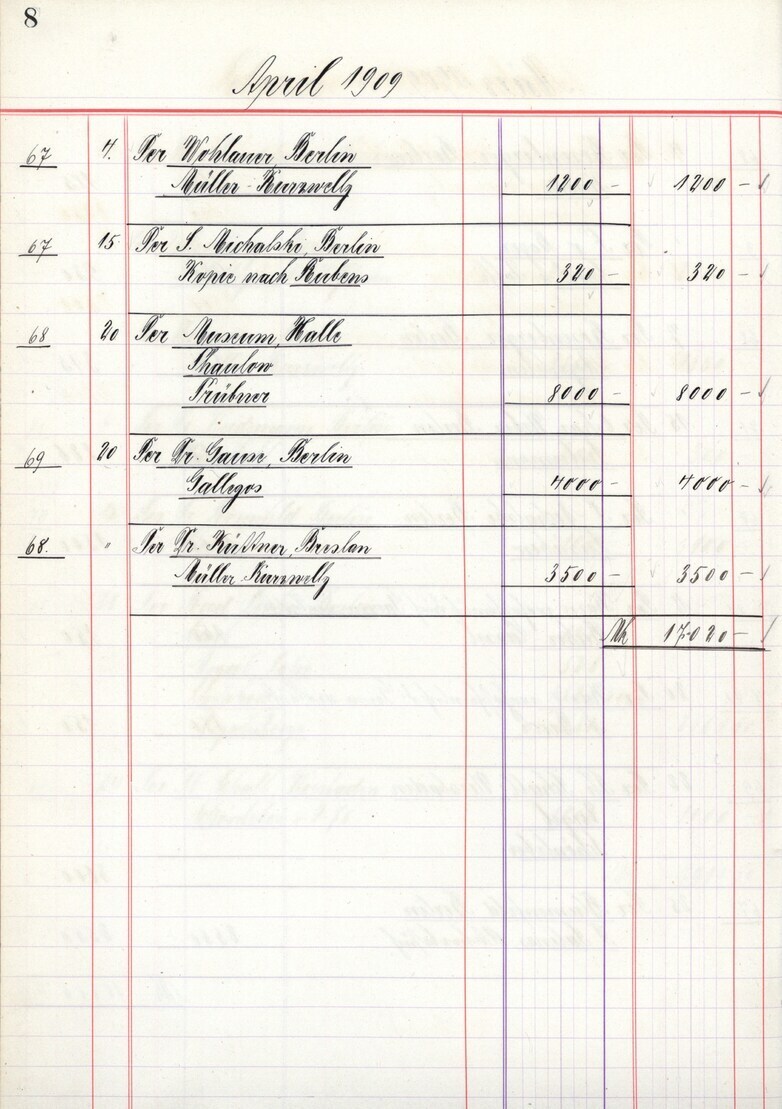 8
April 1909
67 7. Per Wohlauer, Berlin
Müller-Kurzwelly 1200 – 1200 –
67 15. Per S. Michalski, Berlin
Kopie nach Rubens 320 – 320 –
68 20 Per Museum, Halle
Thaulow
Trübner 8000 – 8000 –
69 20 Per Dr. Gause, Berlin
Gallegos 4000 – 4000 –
68. " Per Dr. Küttner, Breslau
Müller-Kurzwelly 3500 – 3500 –
Mk 17020 –